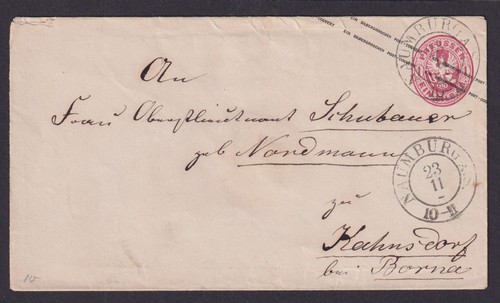 EIN SILBERGROSCHEN POST-COUVERT
PREUSSEN
NAUMBURG A
An
Frau Oberstlieutenant Schubauer
geb Nordmann
NAUMBURG A.S.
23
11
10-11
zu
Kahnsdorf
bei Borna
10